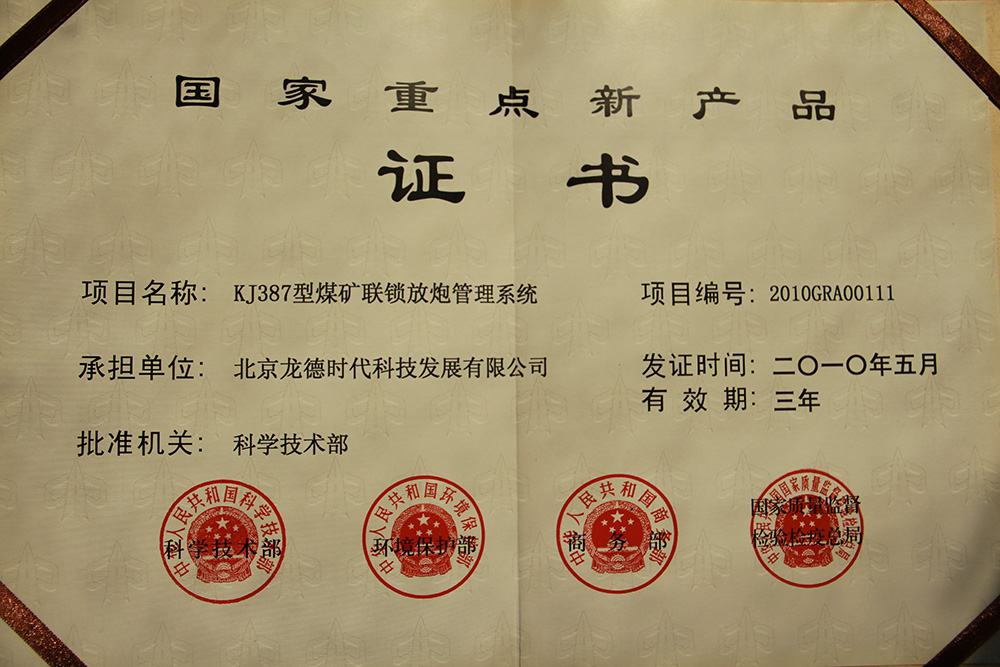 国家重点新产品
证书
项目名称: KJ387型煤矿联锁放炮管理系统
项目编号: 2010GRA00111
承担单位: 北京龙德时代科技发展有限公司
发证时间: 二〇一〇年五月
有效期: 三年
批准机关: 科学技术部
中华人民共和国科学技术部
科学技术部
中华人民共和国环境保护部
环境保护部
中华人民共和国商务部
商务部
国家质量监督
检验检疫总局